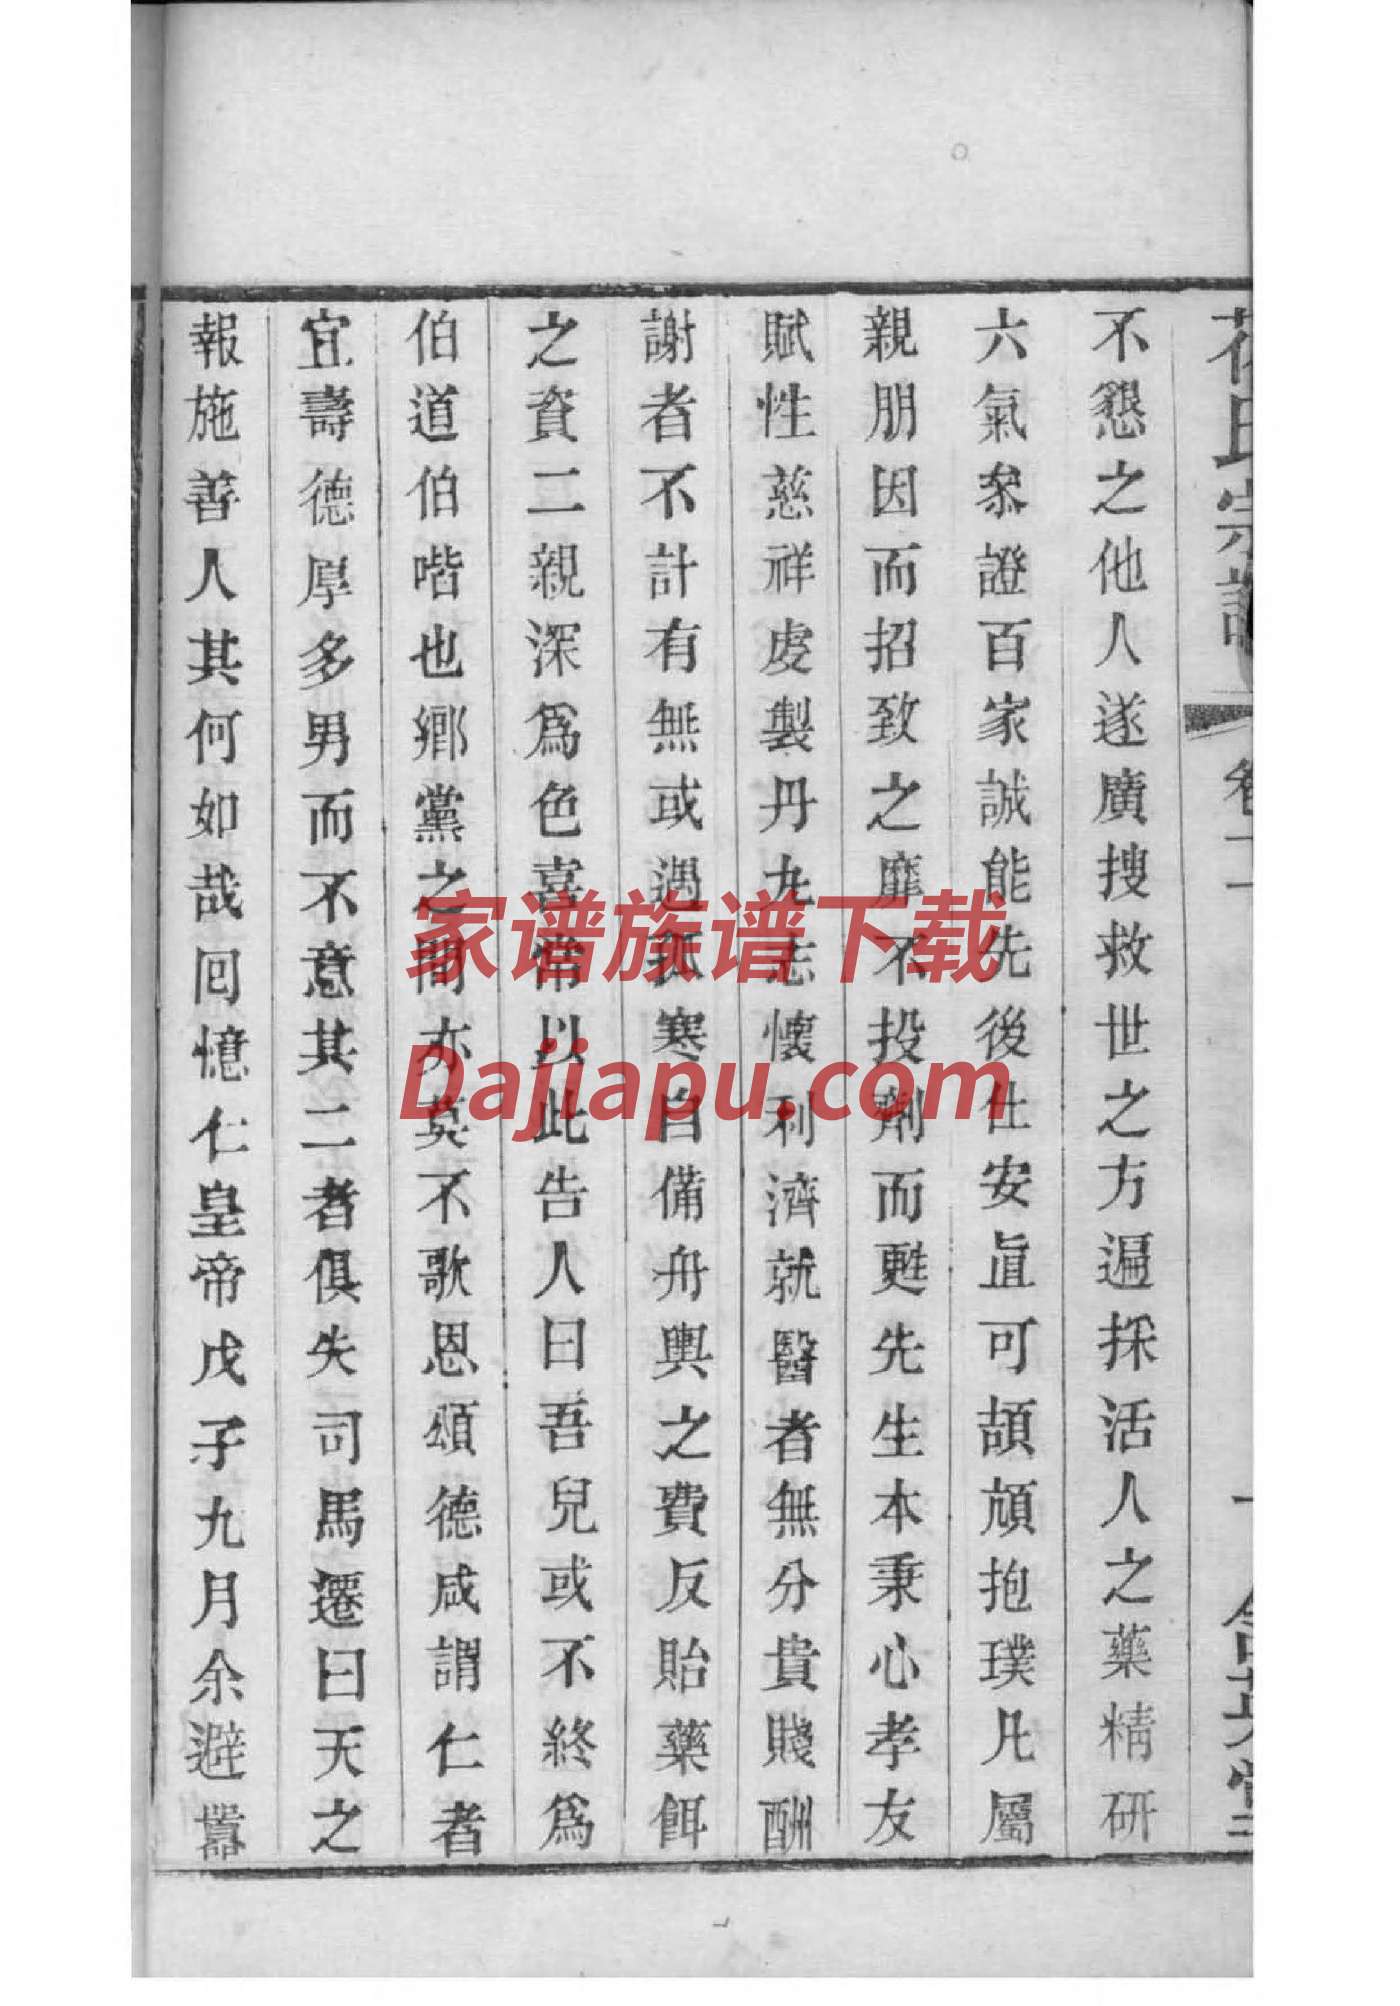 花氏宗譜
卷十一
不懇之他人遂廣搜救世之方遍採活人之藥精研
六氣叅證百家誠能先後仕安直可頡頏抱璞凡屬
親朋因而招致之靡不投劑而甦先生本秉心孝友
賦性慈祥虔製丹丸志懷利濟就醫者無分貴賤酬
謝者不計有無或遇孤寒自備舟輿之費反貽藥餌
之資二親深爲色喜常以此告人曰吾兒或不終爲
伯道伯喈也鄉黨之間亦莫不歌恩頌德咸謂仁者
宜壽德厚多男而不意其二者俱失司馬遷曰天之
報施善人其何如哉囘憶仁皇帝戊子九月余避囂
家谱族谱下载
Dajiapu.com